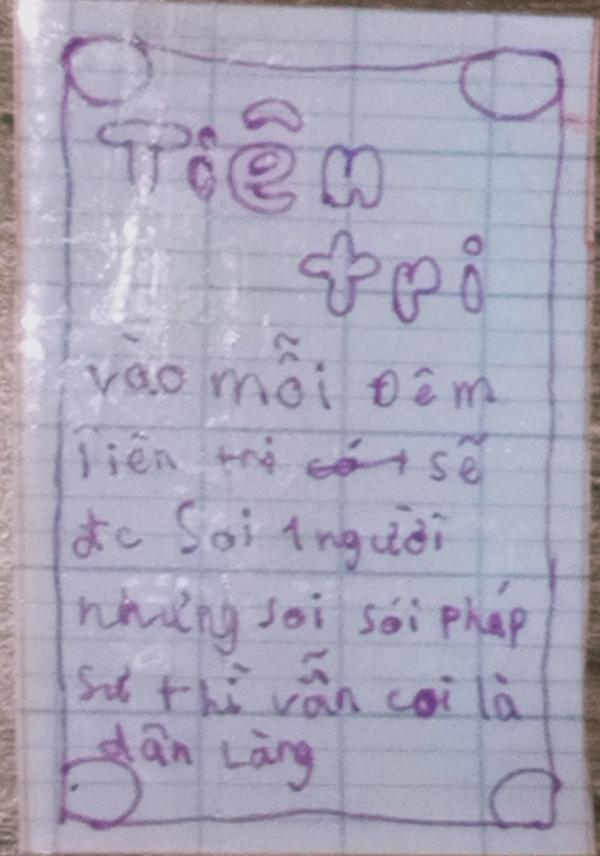 Tiên
tri
vào mỗi đêm
Tiên tri sẽ
đc Soi 1 người
nhưng soi sói pháp
sư thì vẫn coi là
dân Làng